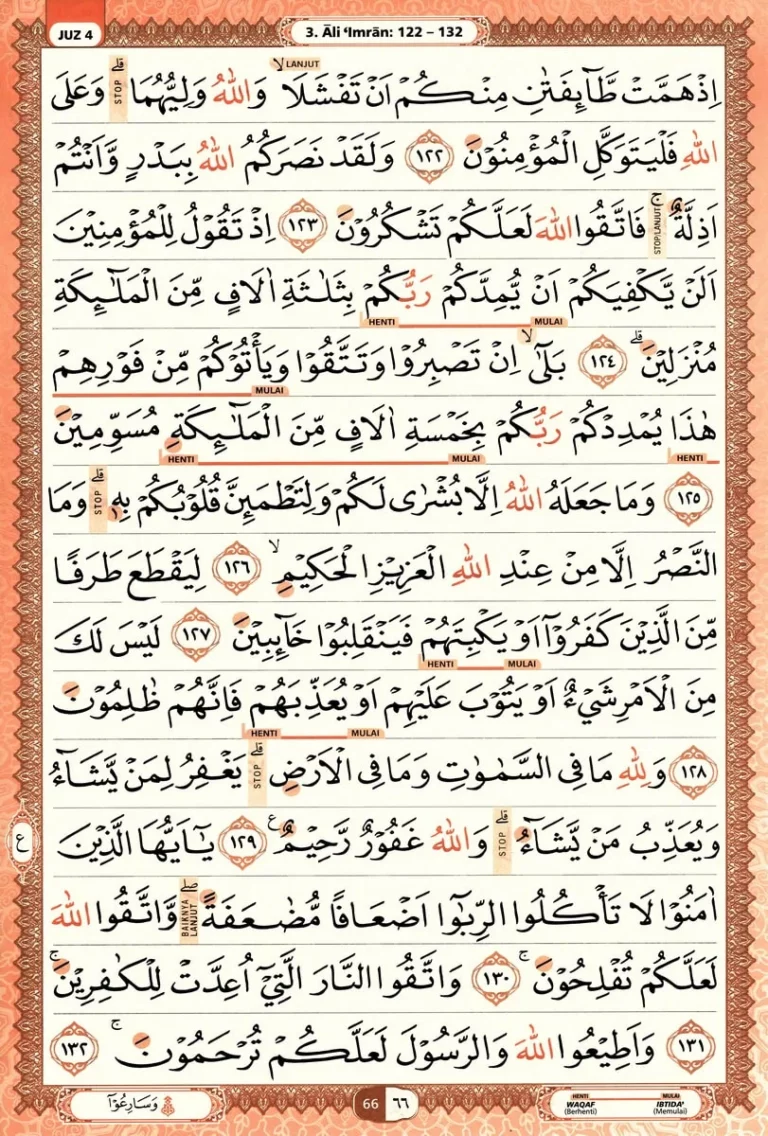 JUZ 4
3. Āli ‘Imrān: 122 – 132
اِذْ هَمَّتْ طَّاۤىِٕفَتٰنِ مِنْكُمْ اَنْ تَفْشَلَاۙ LANJUT وَاللّٰهُ وَلِيُّهُمَاۗ STOP وَعَلَى
اللّٰهِ فَلْيَتَوَكَّلِ الْمُؤْمِنُوْنَ ١٢٢ وَلَقَدْ نَصَرَكُمُ اللّٰهُ بِبَدْرٍ وَّاَنْتُمْ
اَذِلَّةٌۚ STOP/LANJUT فَاتَّقُوا اللّٰهَ لَعَلَّكُمْ تَشْكُرُوْنَ ١٢٣ اِذْ تَقُوْلُ لِلْمُؤْمِنِيْنَ
اَلَنْ يَّكْفِيَكُمْ اَنْ يُّمِدَّكُمْ رَبُّكُمْ بِثَلٰثَةِ اٰلَافٍ مِّنَ الْمَلٰۤىِٕكَةِ
HENTI MULAI
مُنْزَلِيْنَۗ ١٢٤ بَلٰٓىۙ اِنْ تَصْبِرُوْا وَتَتَّقُوْا وَيَأْتُوْكُمْ مِّنْ فَوْرِهِمْ
MULAI
هٰذَا يُمْدِدْكُمْ رَبُّكُمْ بِخَمْسَةِ اٰلَافٍ مِّنَ الْمَلٰۤىِٕكَةِ مُسَوِّمِيْنَ
HENTI MULAI HENTI
١٢٥ وَمَا جَعَلَهُ اللّٰهُ اِلَّا بُشْرٰى لَكُمْ وَلِتَطْمَىِٕنَّ قُلُوْبُكُمْ بِهٖۗ STOP وَمَا
النَّصْرُ اِلَّا مِنْ عِنْدِ اللّٰهِ الْعَزِيْزِ الْحَكِيْمِۙ ١٢٦ لِيَقْطَعَ طَرَفًا
مِّنَ الَّذِيْنَ كَفَرُوْٓا اَوْ يَكْبِتَهُمْ فَيَنْقَلِبُوْا خَاۤىِٕبِيْنَ ١٢٧ لَيْسَ لَكَ
HENTI MULAI
مِنَ الْاَمْرِ شَيْءٌ اَوْ يَتُوْبَ عَلَيْهِمْ اَوْ يُعَذِّبَهُمْ فَاِنَّهُمْ ظٰلِمُوْنَ
HENTI MULAI
١٢٨ وَلِلّٰهِ مَا فِى السَّمٰوٰتِ وَمَا فِى الْاَرْضِۗ STOP يَغْفِرُ لِمَنْ يَّشَاۤءُ
وَيُعَذِّبُ مَنْ يَّشَاۤءُۗ STOP وَاللّٰهُ غَفُوْرٌ رَّحِيْمٌ ࣖ ١٢٩ يٰٓاَيُّهَا الَّذِيْنَ
ع
اٰمَنُوْا لَا تَأْكُلُوا الرِّبٰوٓا اَضْعَافًا مُّضٰعَفَةًۖ BAIKNYA LANJUT وَّاتَّقُوا اللّٰهَ
لَعَلَّكُمْ تُفْلِحُوْنَۚ ١٣٠ وَاتَّقُوا النَّارَ الَّتِيْٓ اُعِدَّتْ لِلْكٰفِرِيْنَۚ
١٣١ وَاَطِيْعُوا اللّٰهَ وَالرَّسُوْلَ لَعَلَّكُمْ تُرْحَمُوْنَۚ ١٣٢
وَسَارِعُوْٓا
66 ٦٦
HENTI MULAI
WAQAF IBTIDA'
(Berhenti) (Memulai)